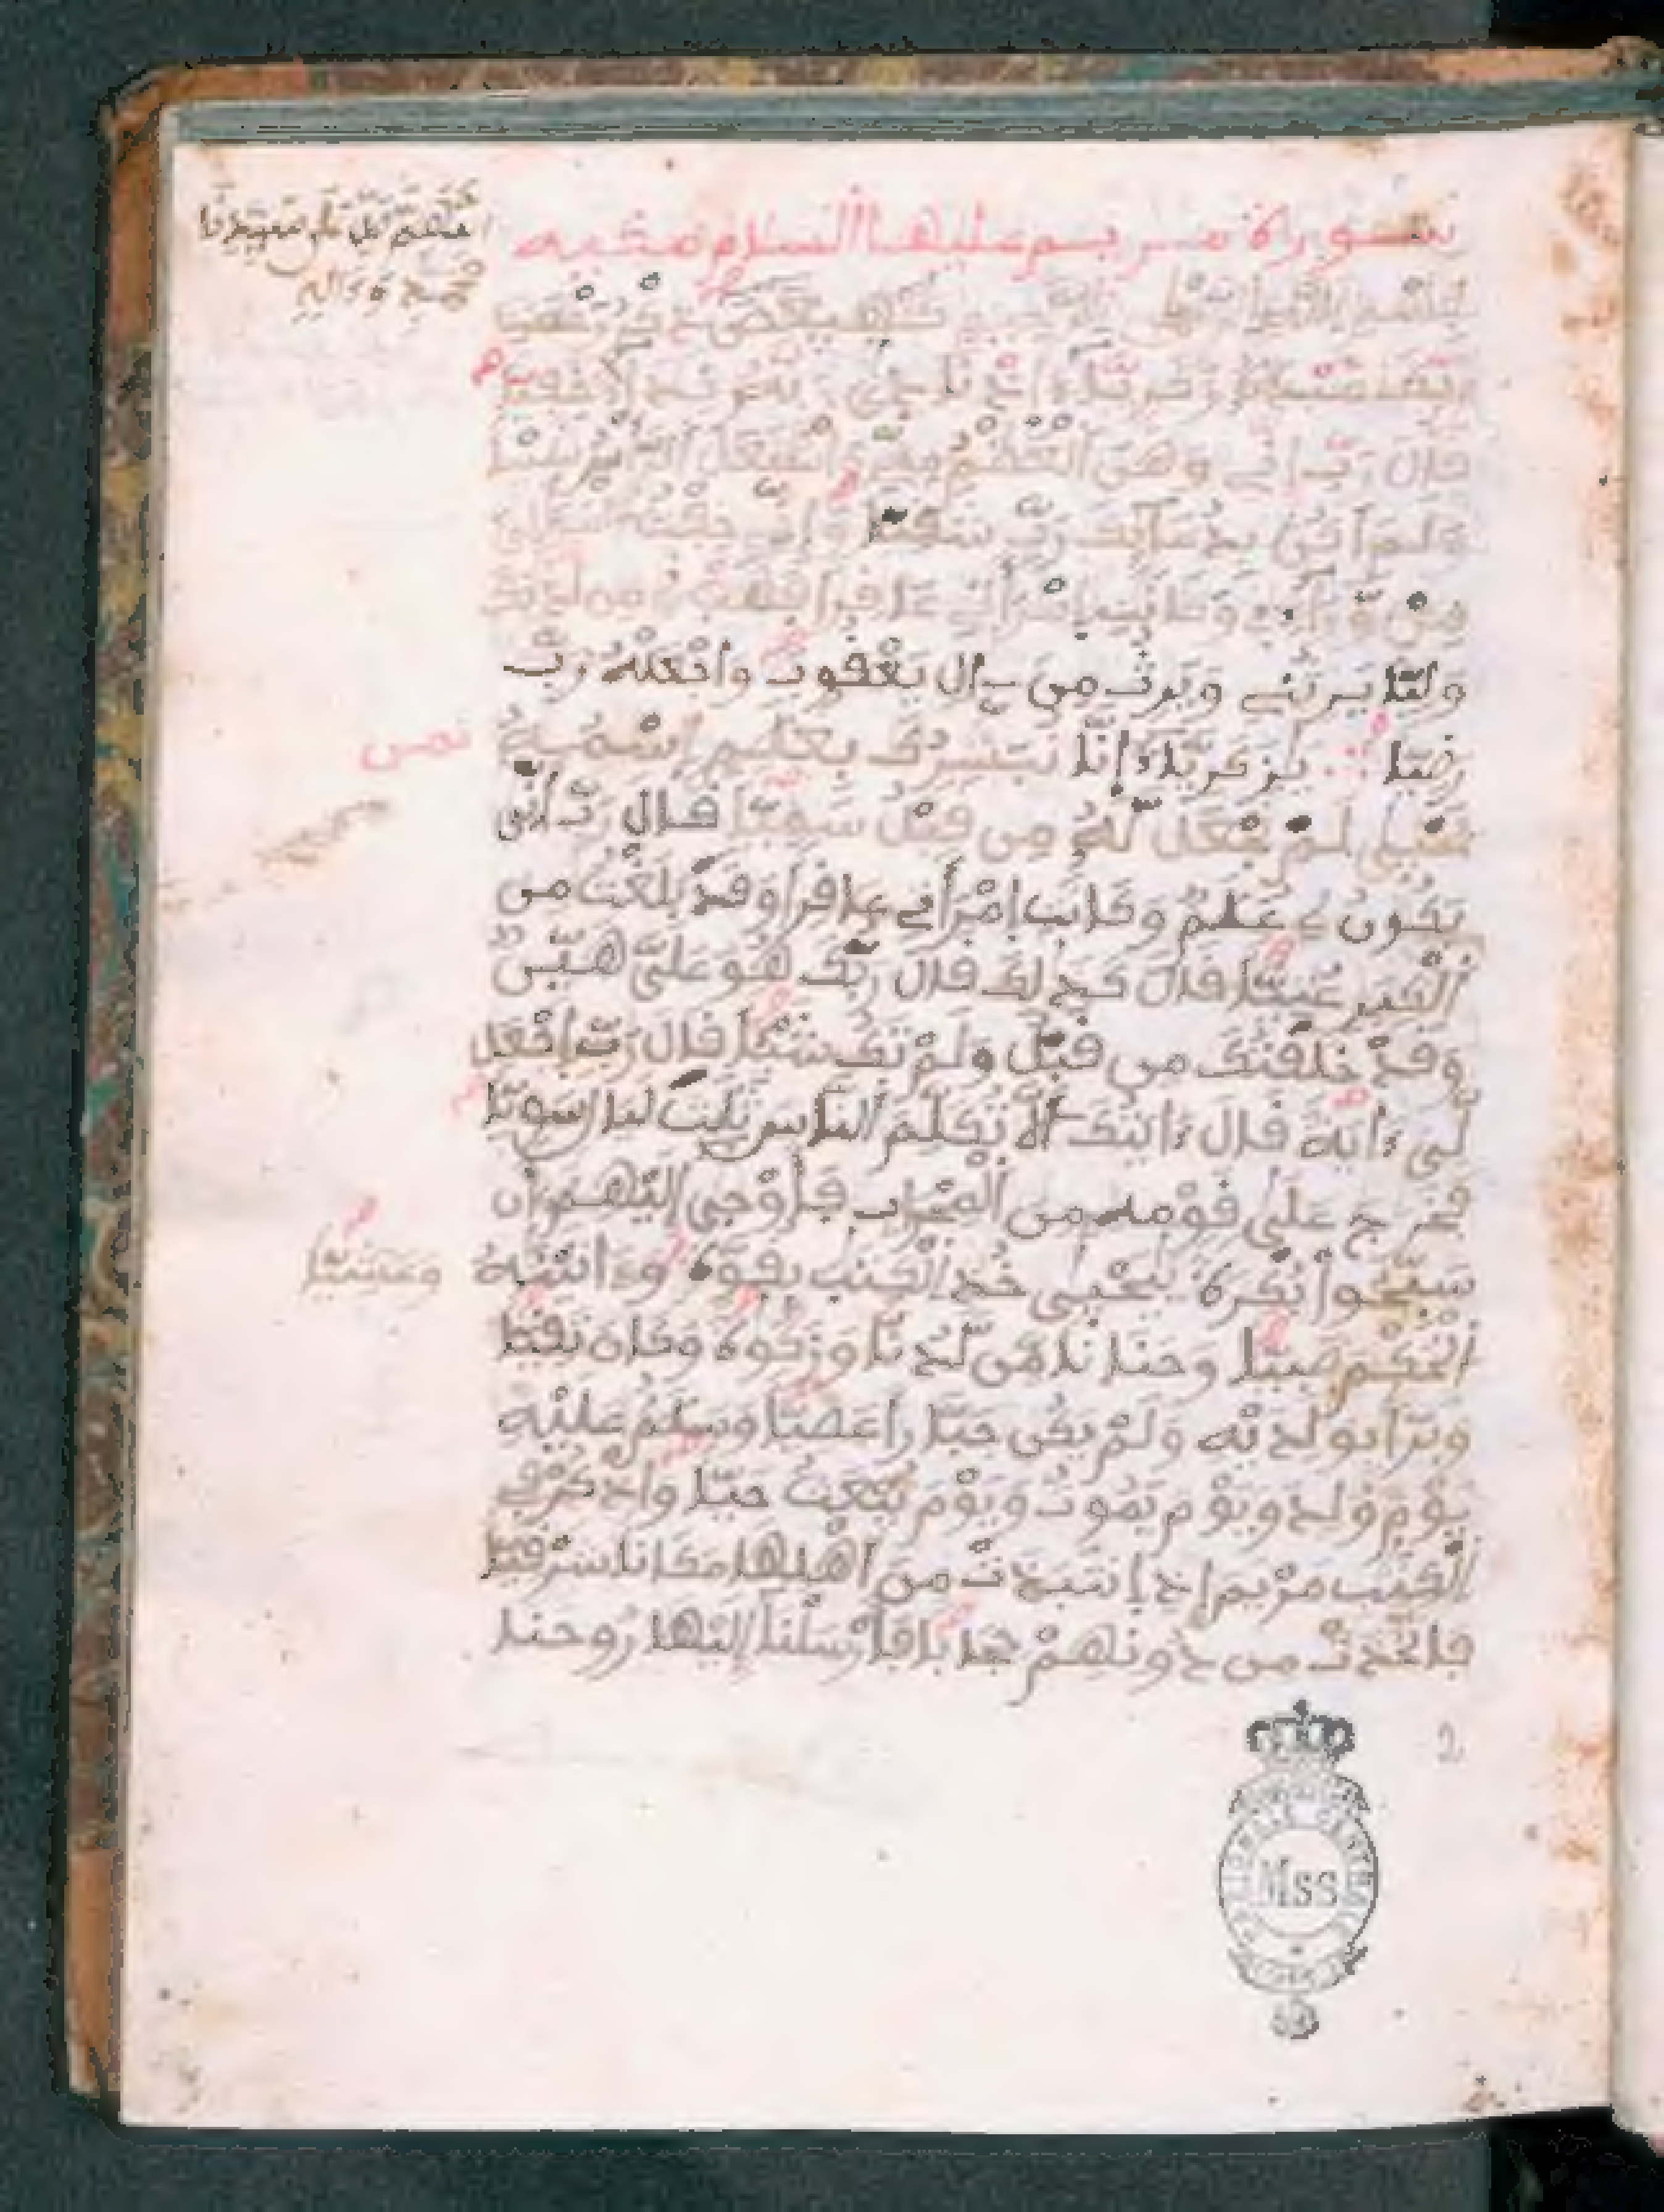 اللهم صل على سيدنا
محمد وءاله
سورة مريم عليها السلام مكية
بسم الله الرحمن الرحيم كهيعص ذكر رحمت
ربك عبده زكرياء اذ نادى ربه نداء خفيا
قال رب اني وهن العظم مني واشتعل الراس شيبا
ولم اكن بدعائك رب شقيا واني خفت الموالي
من وراءي وكانت امراتي عاقرا فهب لي من لدنك
وليا يرثني ويرث من ءال يعقوب واجعله رب
رضيا يزكرياء انا نبشرك بغلم اسمه
يحيى لم نجعل له من قبل سميا قال رب انى
يكون لي غلم وكانت امراتي عاقرا وقد بلغت من
الكبر عتيا قال كذلك قال ربك هو علي هين
وقد خلقتك من قبل ولم تك شيئا قال رب اجعل
لي ءاية قال ءايتك الا تكلم الناس ثلث ليال سويا
فخرج على قومه من المحراب فأوحى إليهم أن
سبحوا بكرة يحيى خذ الكتب بقوة وءاتينه
وعشيا
الحكم صبيا وحنانا من لدنا وزكوة وكان تقيا
وبرا بولديه ولم يكن جبارا عصيا وسلم عليه
يوم ولد ويوم يموت ويوم يبعث حيا واذكر في
الكتب مريم إذ إنتبذت من أهلها مكانا شرقيا
فاتخذت من دونهم حجابا فأرسلنا إليها روحنا
2
Mss